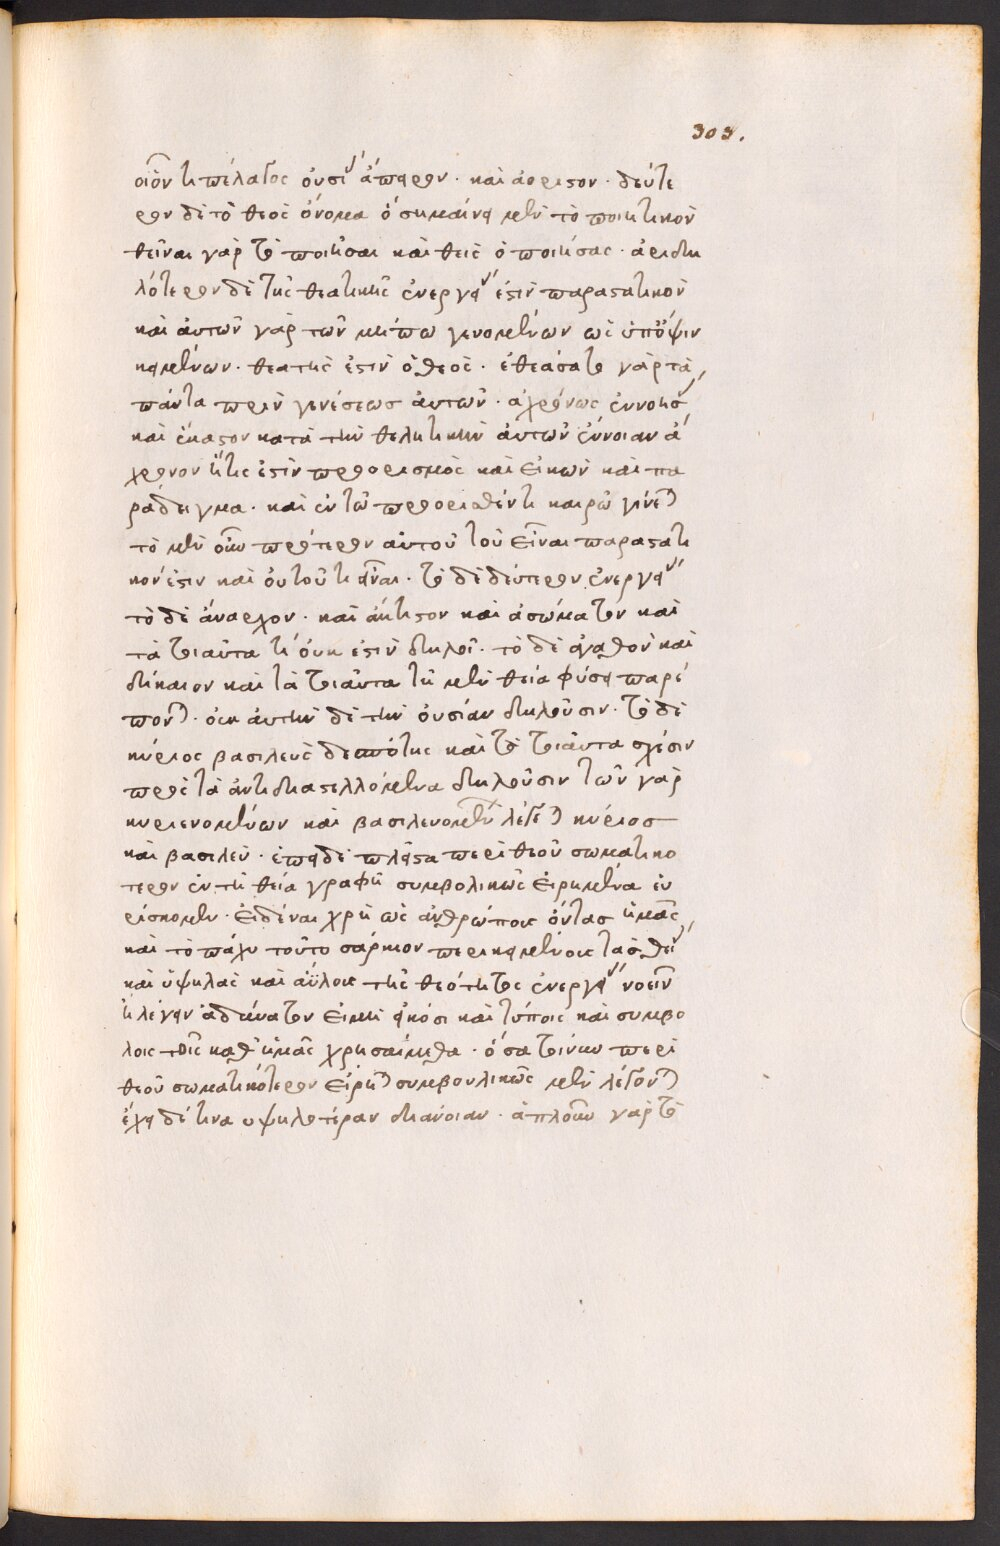 303.
οἷόν τι πέλαγος οὐσί ἄπειρον · καὶ ἀόριστον · δεύτε
ρον δὲ τὸ θεὸς ὄνομα ὁ σημαίνει μὲν τὸ ποιητικὸν
θεῖναι γὰρ τὸ ποιῆσαι καὶ θεὶς ὁ ποιήσας · ἀριδη
λότερον δὲ τῆς θεατικῆς ἐνεργεί ἐστὶν παραστατικὸν
καὶ ἀυτῶν γὰρ τῶν μήπω γενομένων ὡς ὑπόψιν
κειμένων · θεατής ἐστὶν ὁ θεὸς · ἐθεάσατο γὰρ τὰ
πάντα πρὶν γενέσεως ἀυτῶν · ἀχρόνως ἐννοήσ
καὶ ἕκαστον κατὰ τὴν θελητικὴν ἀυτῶν ἔννοιαν ἄ
χρονον ἥτις ἐστὶν προορισμὸς καὶ εἰκὼν καὶ πα
ράδειγμα · καὶ ἐν τῷ προορισθέντι καιρῷ γίνε
τὸ μὲν οὖν πρότερον αὐτοῦ τοῦ εἶναι παραστατι
κόν ἐστιν καὶ οὐ τοῦ τι εἶναι · τὸ δὲ δεύτερον ἐνεργεί
τὸ δὲ ἄναρχον · καὶ ἄκτιστον καὶ ἀσώματον καὶ
τὰ τοιαῦτα τί οὐκ ἐστὶν δηλοῖ · τὸ δὲ ἀγαθὸν καὶ
δίκαιον καὶ τὰ τοιαῦτα τῇ μὲν θεία φύσει παρέ
πον · οὐκ ἀυτὴν δὲ τὴν οὐσίαν δηλοῦσιν · τὸ δὲ
κύριος βασιλεὺς δεσπότης καὶ τὰ τοιαῦτα σχέσιν
πρὸς τὰ ἀντιδιαστελλόμενα δηλοῦσιν τῶν γὰρ
κυριευομένων καὶ βασιλευομέν λέγε κύριος
καὶ βασιλεύ · ἐπεὶ δὲ πλεῖστα περὶ θεοῦ σωματικο
τερον ἐν τῇ θεία γραφῇ συμβολικῶς εἰρημένα εὑ
ρίσκομεν · εἰδέναι χρὴ ὡς ἀνθρώπους ὄντας ἡμᾶς
καὶ τὸ παχὺ τοῦτο σάρκιον περικειμένους τὰς θεί
καὶ ὑψηλὰς καὶ ἀΰλους τῆς θεότητος ἐνεργεί νοεῖν
ἢ λέγειν ἀδύνατον εἰ μὴ εἰκόσι καὶ τύποις καὶ συμβό
λοις τοῖς καθ' ἡμᾶς χρησαίμεθα · ὅσα τοίνυν περὶ
θεοῦ σωματικότερον εἴρη συμβουλικῶς μὲν λέγον
ἔχει δέ τινα υψηλοτέραν διάνοιαν · ἁπλοῦν γὰρ τὸ